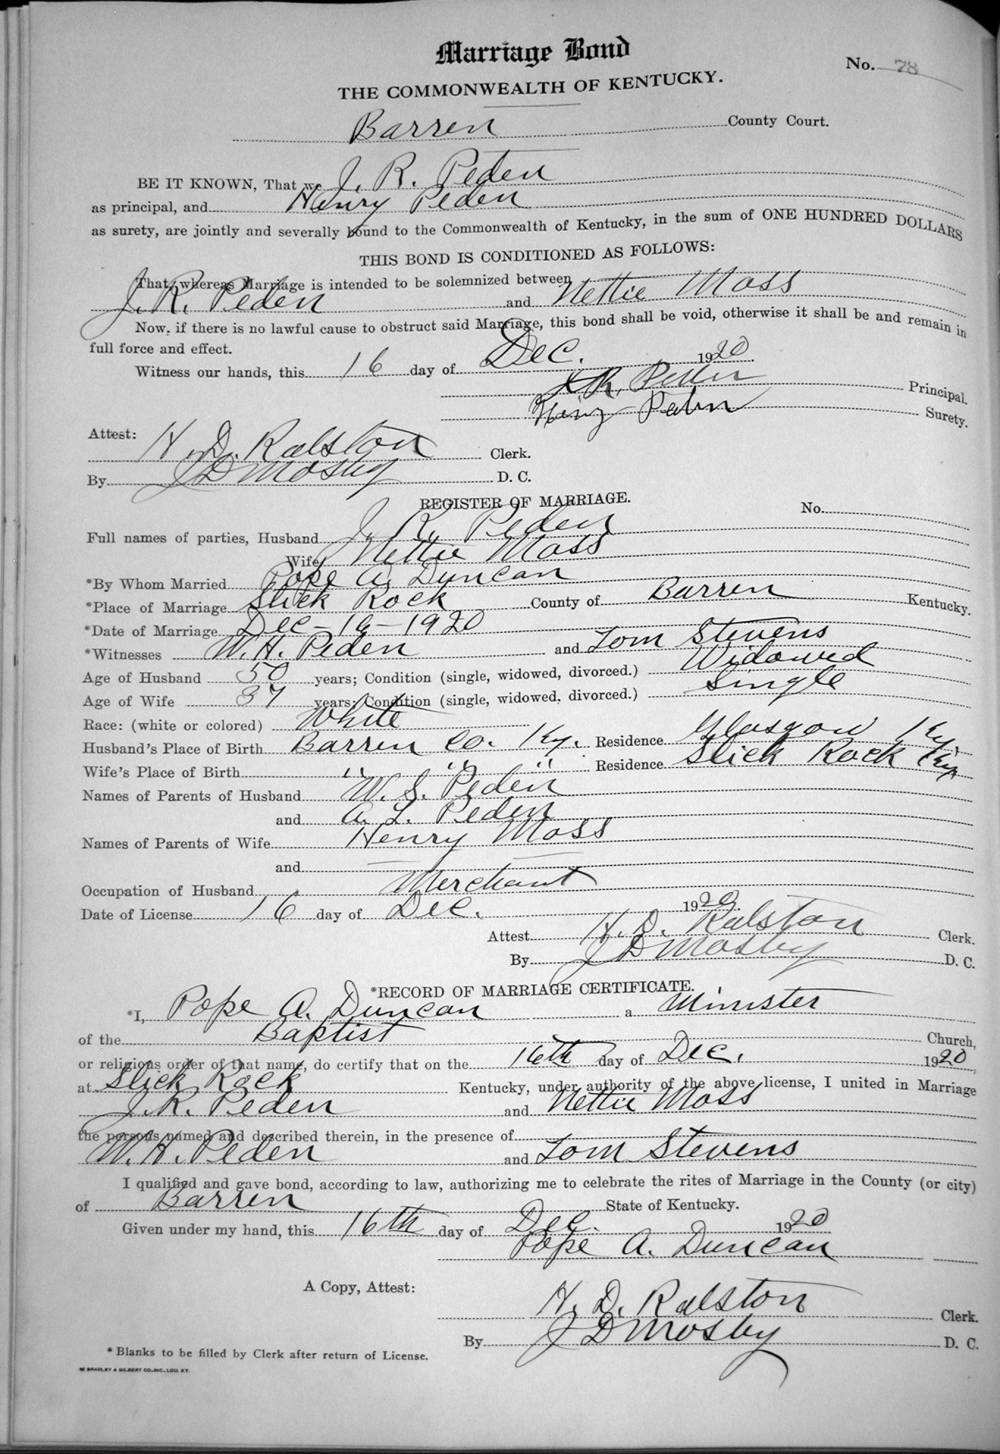 Marriage Bond
No. 78
THE COMMONWEALTH OF KENTUCKY.
Barren County Court.
BE IT KNOWN, That we J. R. Peden
as principal, and Henry Peden
as surety, are jointly and severally bound to the Commonwealth of Kentucky, in the sum of ONE HUNDRED DOLLARS
THIS BOND IS CONDITIONED AS FOLLOWS:
That, whereas Marriage is intended to be solemnized between
J. R. Peden and Nettie Moss
Now, if there is no lawful cause to obstruct said Marriage, this bond shall be void, otherwise it shall be and remain in
full force and effect.
Witness our hands, this 16 day of Dec. 1920
J. R. Peden Principal.
Henry Peden Surety.
Attest: H. D. Ralston Clerk.
By J D Mosby D. C.
REGISTER OF MARRIAGE. No.
Full names of parties, Husband J. R. Peden
Wife Nettie Moss
*By Whom Married Pope A. Duncan
*Place of Marriage Slick Rock County of Barren Kentucky.
*Date of Marriage Dec-16-1920
*Witnesses W. H. Peden and Tom Stevens
Age of Husband 50 years; Condition (single, widowed, divorced.) Widowed
Age of Wife 37 years; Condition (single, widowed, divorced.) Single
Race: (white or colored) White
Husband's Place of Birth Barren Co. Ky. Residence Glasgow Ky.
Wife's Place of Birth " " " Residence Slick Rock Ky
Names of Parents of Husband W. S. Peden
and A. L. Peden
Names of Parents of Wife Henry Moss
and
Occupation of Husband Merchant
Date of License 16 day of Dec. 1920.
Attest H. D. Ralston Clerk.
By J D Mosby D. C.
*RECORD OF MARRIAGE CERTIFICATE.
*I, Pope A. Duncan a Minister
of the Baptist Church,
or religious order of that name, do certify that on the 16th day of Dec. 1920,
at Slick Rock Kentucky, under authority of the above license, I united in Marriage
J. R. Peden and Nettie Moss
the persons named and described therein, in the presence of
W. H. Peden and Tom Stevens
I qualified and gave bond, according to law, authorizing me to celebrate the rites of Marriage in the County (or city)
of Barren State of Kentucky.
Given under my hand, this 16th day of Dec. 1920
Pope A. Duncan
A Copy, Attest:
H. D. Ralston Clerk.
By J D Mosby D. C.
* Blanks to be filled by Clerk after return of License.
BRADLEY & GILBERT CO., INC., LOU. KY.